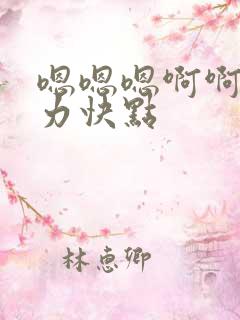 嗯嗯嗯啊啊
力快點
林惠卿